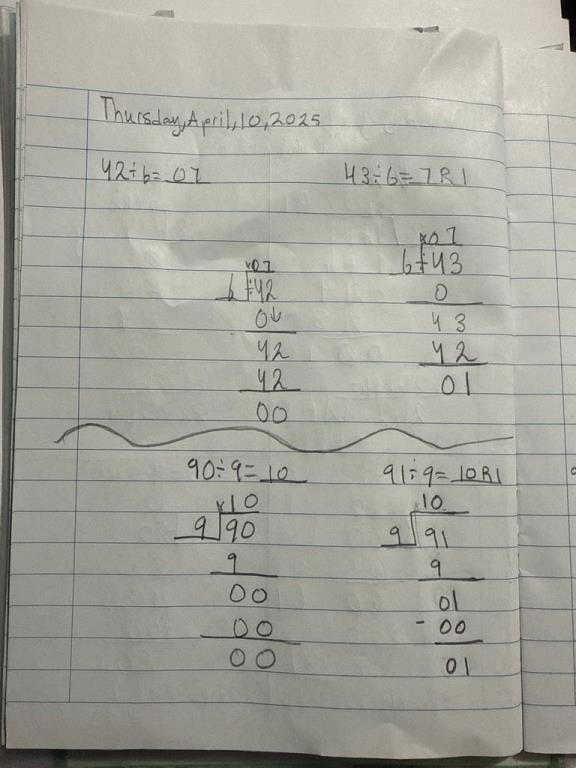 Thursday,April,10,2025
42÷6=07
43÷6=7R1
×07
6÷42
0↓
42
42
00
×07
6÷43
0
43
42
01
90÷9=10
×10
9 90
9
00
00
00
91÷9=10R1
10
9 91
9
01
-00
01